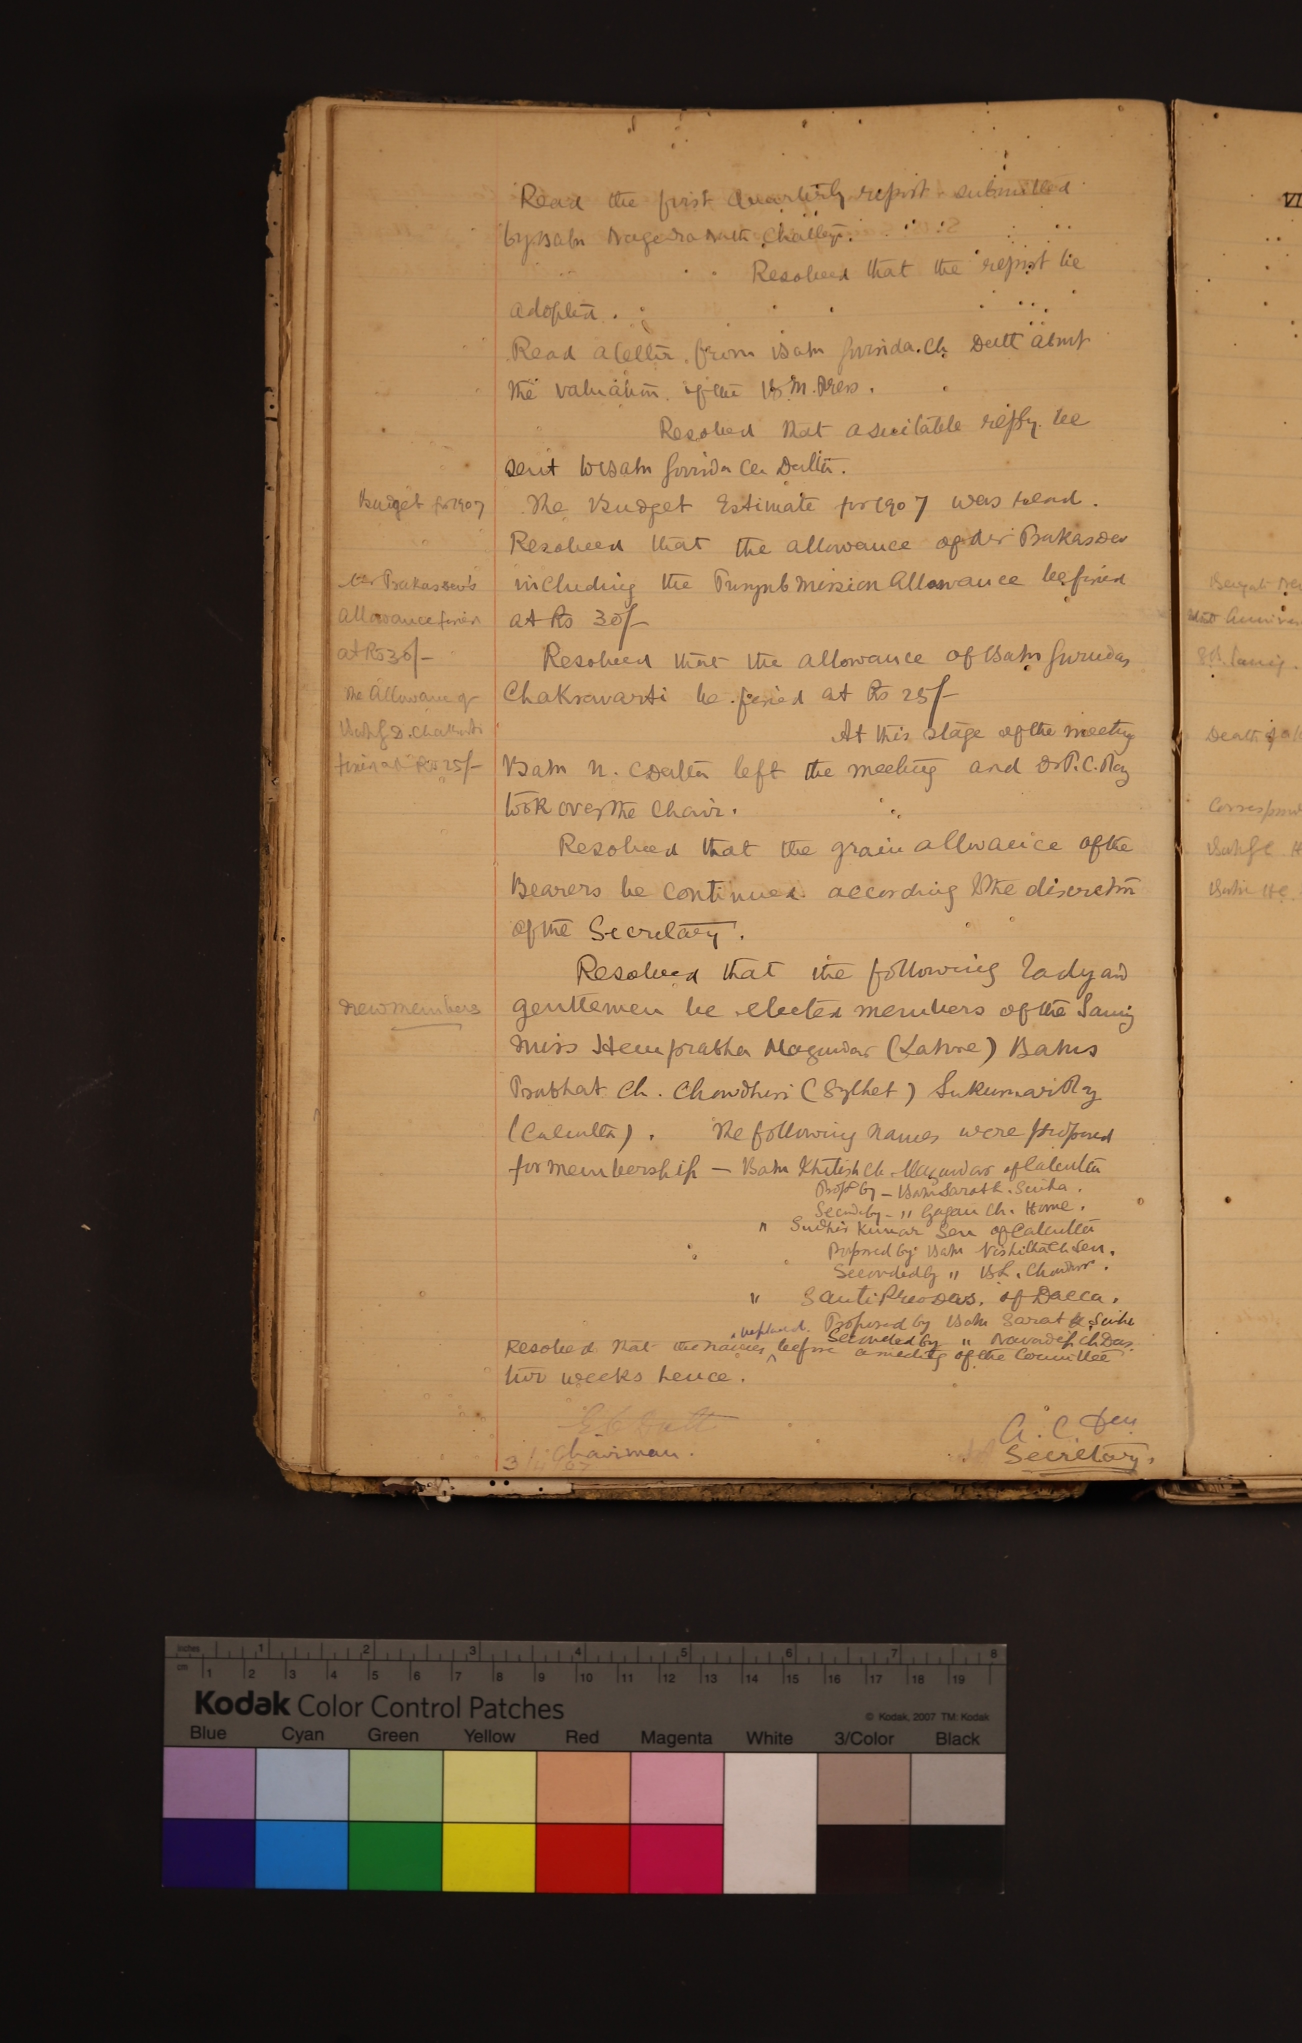 Read the first quarterly report submitted
by Babu Nagendra Nath Chatterji.
Resolved that the report be
adopted.
Read a letter from Babu Govinda Ch. Dutt about
the valuation of the B. M. Press.
Resolved that a suitable reply be
sent to Babu Govinda Ch. Dutta.
Budget for 1907
The Budget Estimate for 1907 was read.
Resolved that the allowance of Mr Prakasdev
including the Punjab Mission Allowance be fixed
at Rs 30/-
Mr Prakasdev's
allowance fixed
at Rs 30/-
Resolved that the allowance of Babu Gurudas
Chakravarti be fixed at Rs 25/-
The Allowance of
Babu G. D. Chakravarti
fixed at Rs 25/-
At this stage of the meeting
Babu N. C. Dutta left the meeting and Dr P. C. Ray
took over the chair.
Resolved that the grain allowance of the
Bearers be continued according to the discretion
of the Secretary.
Resolved that the following lady and
New members
gentlemen be elected members of the Samaj
Miss Hemprabha Mazumdar (Lahore) Babus
Prabhat Ch. Chowdhuri (Sylhet) Sukumar Ray
(Calcutta). The following names were proposed
for membership — Babu Khitish Ch. Mazumdar of Calcutta
Prop by — Babu Sarat K. Sinha.
Second by — " Gagan Ch. Home.
" Sudhir Kumar Sen of Calcutta
Proposed by Babu Nishikha Ch Sen.
Seconded by " B. L. Chowdhr.
" Santi Preo Das, of Dacca.
Proposed by Babu Sarat K Sinha
Seconded by " Navadip Ch Das.
Resolved that the names be placed before a meeting of the Committee
two weeks hence.
Chairman.
3/11/07
A. C. Sen
Secretary.
Kodak Color Control Patches
© Kodak, 2007 TM: Kodak
Inches 1 2 3 4 5 6 7 8
cm 1 2 3 4 5 6 7 8 9 10 11 12 13 14 15 16 17 18 19
Blue Cyan Green Yellow Red Magenta White 3/Color Black
VI
Death of